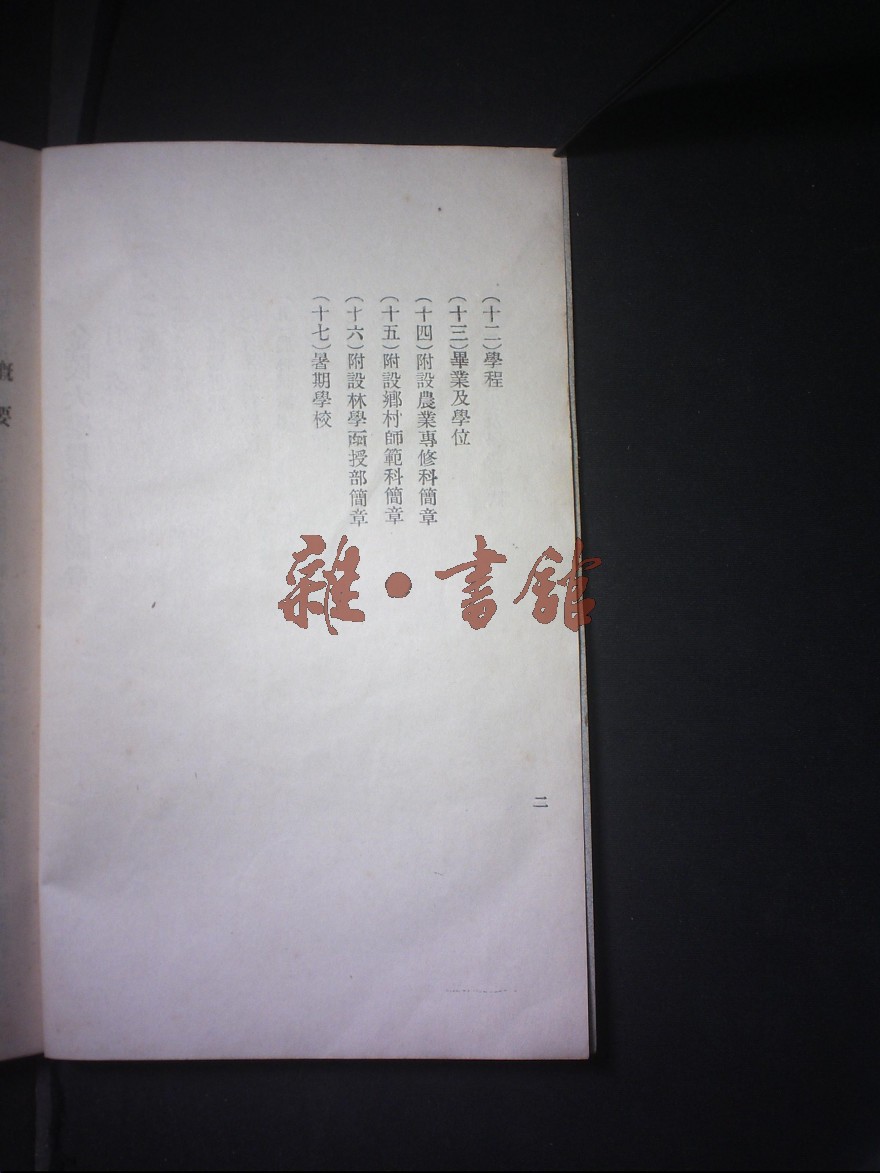 (十二)學程
(十三)畢業及學位
(十四)附設農業專修科簡章
(十五)附設鄉村師範科簡章
(十六)附設林學函授部簡章
(十七)暑期學校
二
雜•書館
概要